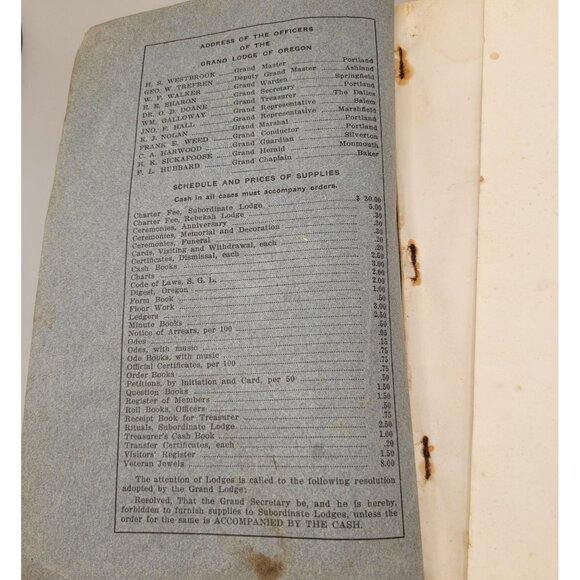 ADDRESS OF THE OFFICERS
OF THE
GRAND LODGE OF OREGON
H. S. WESTBROOK Grand Master Portland
GEO. W. TREFREN Deputy Grand Master Ashland
W. P. WALKER Grand Warden Springfield
E. E. SHARON Grand Secretary Portland
DR. O. D. DOANE Grand Treasurer The Dalles
WM. GALLOWAY Grand Representative Salem
JNO. F. HALL Grand Representative Marshfield
K. J. NOLAN Grand Marshal Portland
FRANK E. WEED Grand Conductor Portland
C. A. HARWOOD Grand Guardian Silverton
H. K. SICKAFOOSE Grand Herald Monmouth
F. L. HUBBARD Grand Chaplain Baker
SCHEDULE AND PRICES OF SUPPLIES
Cash in all cases must accompany orders.
Charter Fee, Subordinate Lodge $ 30.00
Charter Fee, Rebekah Lodge 5.00
Ceremonies, Anniversary .30
Ceremonies, Memorial and Decoration .30
Ceremonies, Funeral .30
Cards, Visiting and Withdrawal, each .20
Certificates, Dismissal, each .20
Cash Books 2.50
Charts 3.00
Code of Laws, S. G. L. 2.00
Digest, Oregon 2.00
Form Book 1.00
Floor Work .50
Ledgers 3.00
Minute Books 2.50
Notice of Arrears, per 100 .50
Odes .05
Odes, with music .15
Ode Books, with music .75
Official Certificates, per 100 .75
Order Books .75
Petitions, by Initiation and Card, per 50 .50
Question Books 1.50
Register of Members 1.50
Roll Books, Officers .50
Receipt Book for Treasurer .75
Rituals, Subordinate Lodge 2.50
Treasurer's Cash Book 1.00
Transfer Certificates, each .20
Visitors' Register 1.50
Veteran Jewels 8.00
The attention of Lodges is called to the following resolution
adopted by the Grand Lodge:
Resolved, That the Grand Secretary be, and he is hereby,
forbidden to furnish supplies to Subordinate Lodges, unless the
order for the same is ACCOMPANIED BY THE CASH.